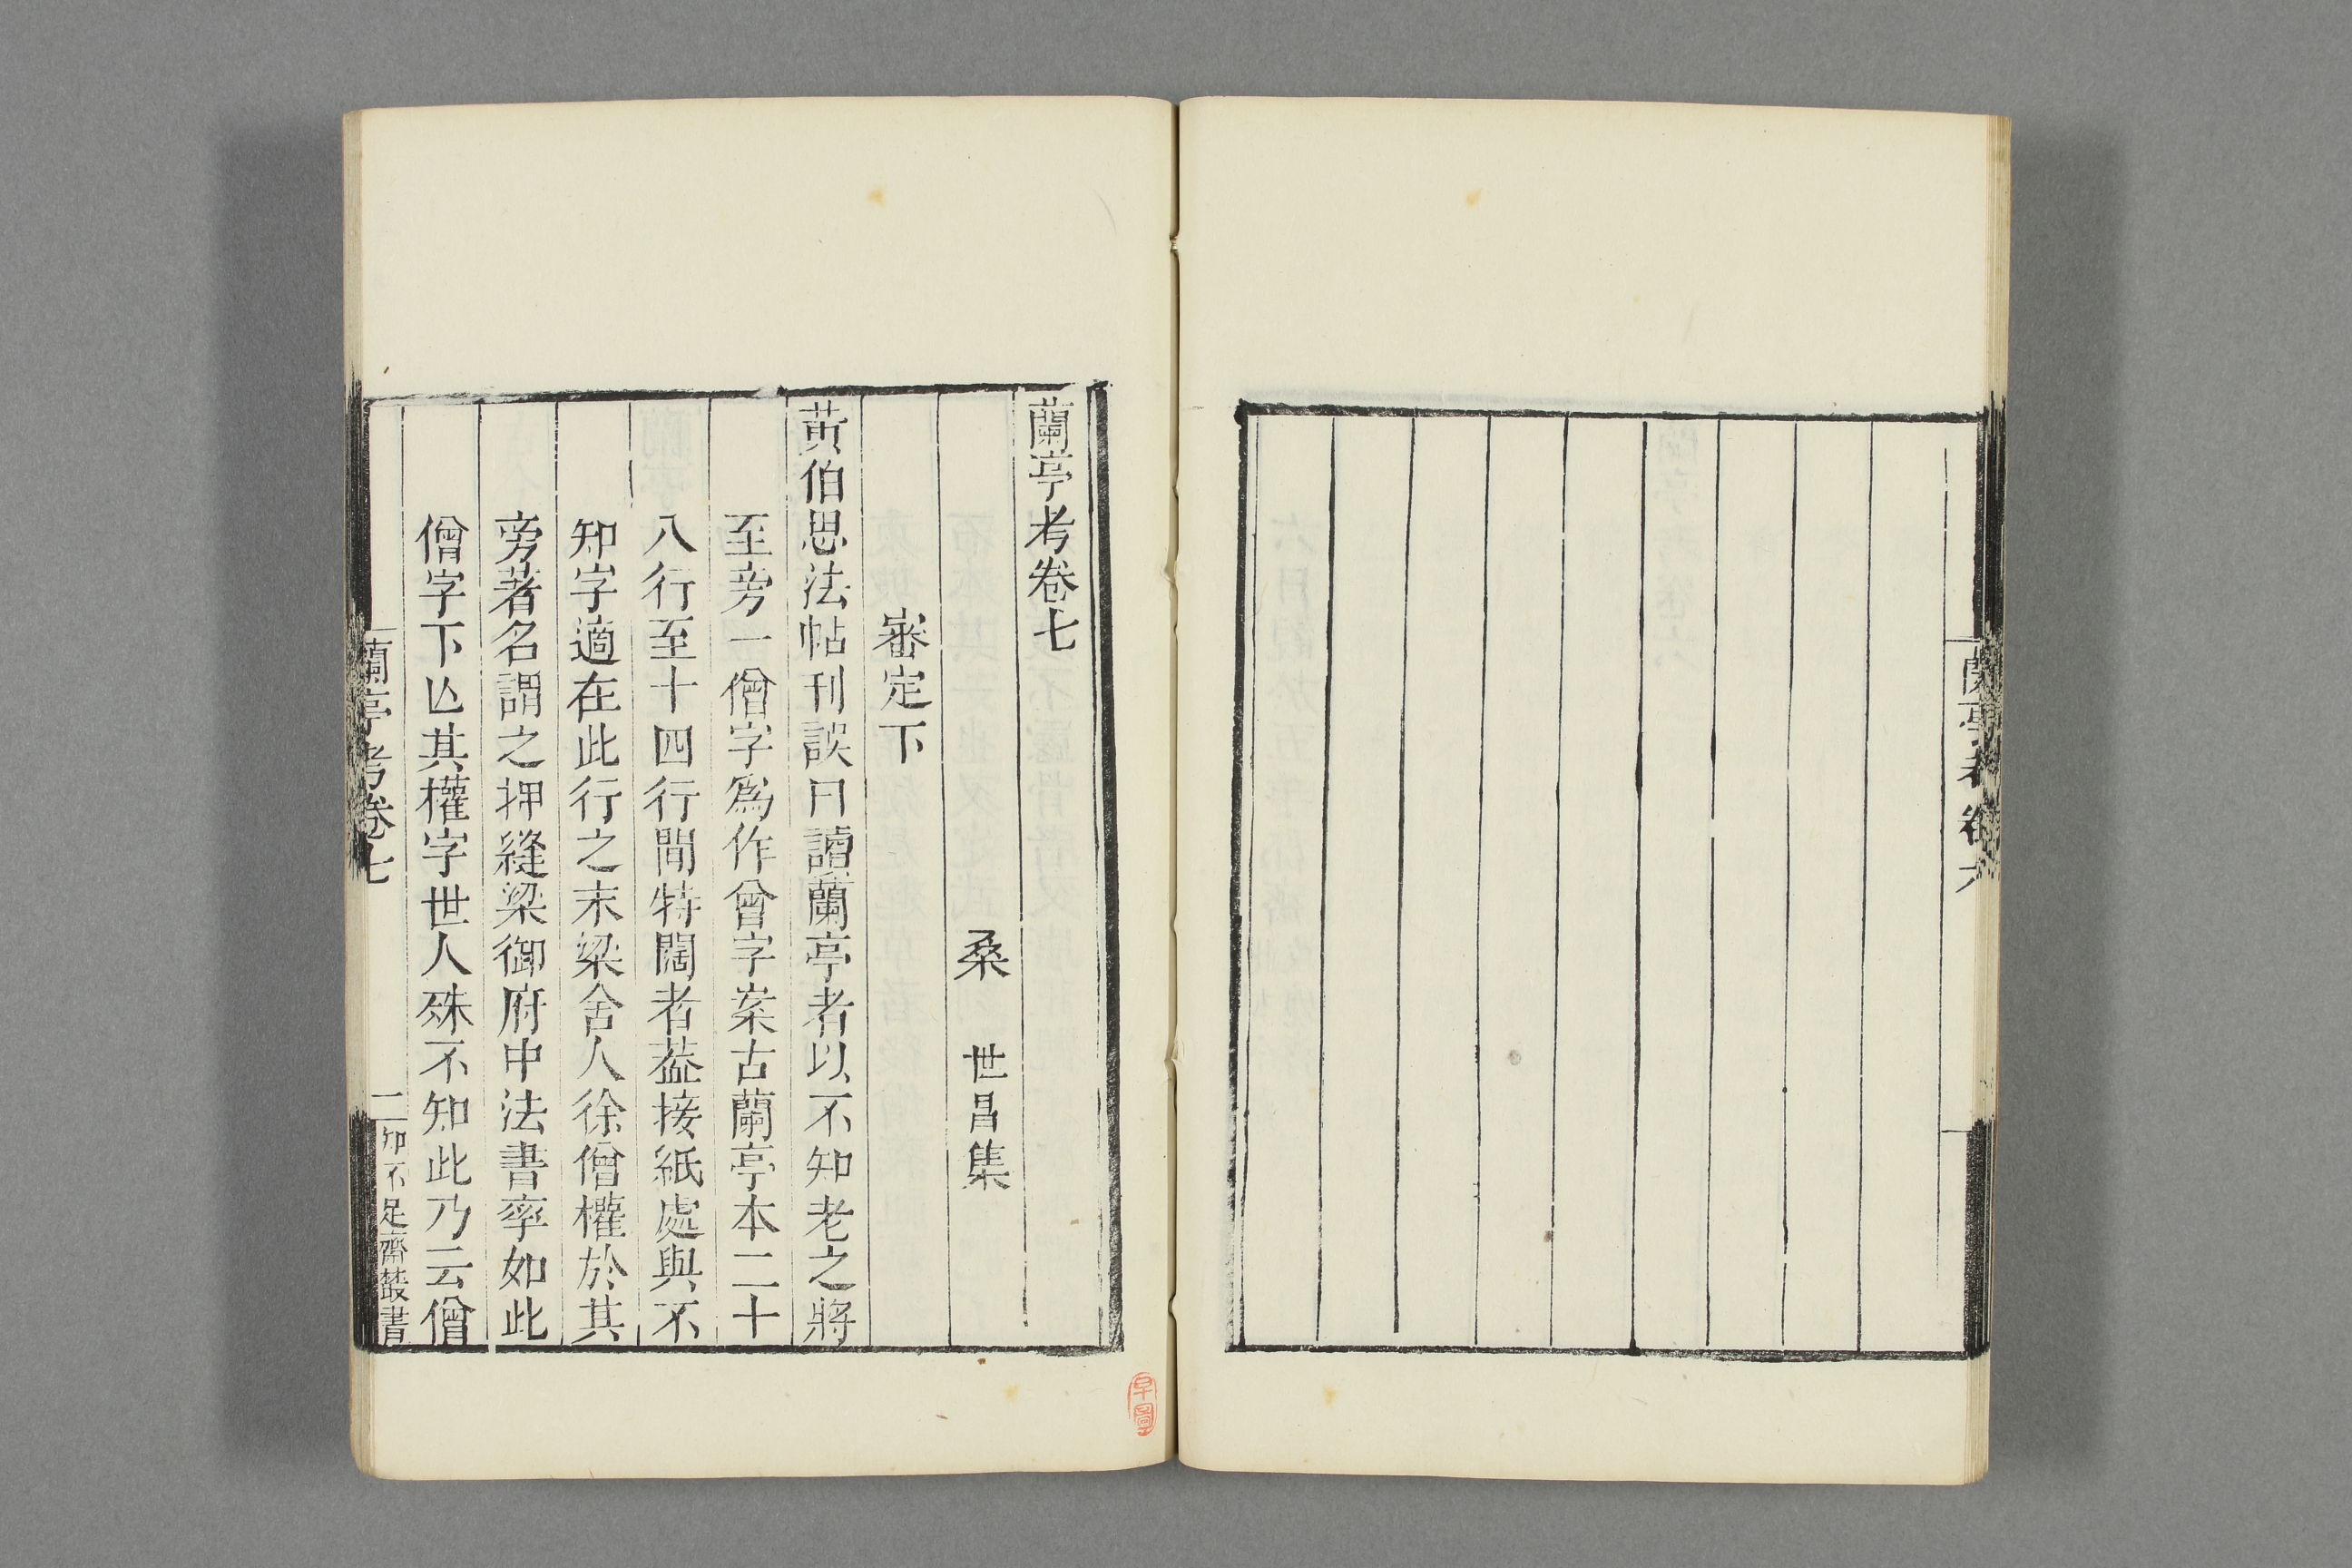 蘭亭考卷六
蘭亭考卷七
桑　世昌集
審定下
黃伯思法帖刊誤曰讀蘭亭者以不知老之將
至旁一僧字爲作曾字案古蘭亭本二十
八行至十四行間特闊者葢接紙處與不
知字適在此行之末梁舍人徐僧權於其
旁著名謂之押縫梁御府中法書率如此
僧字下亾其權字世人殊不知此乃云僧
蘭亭考卷七
二
知不足齋叢書